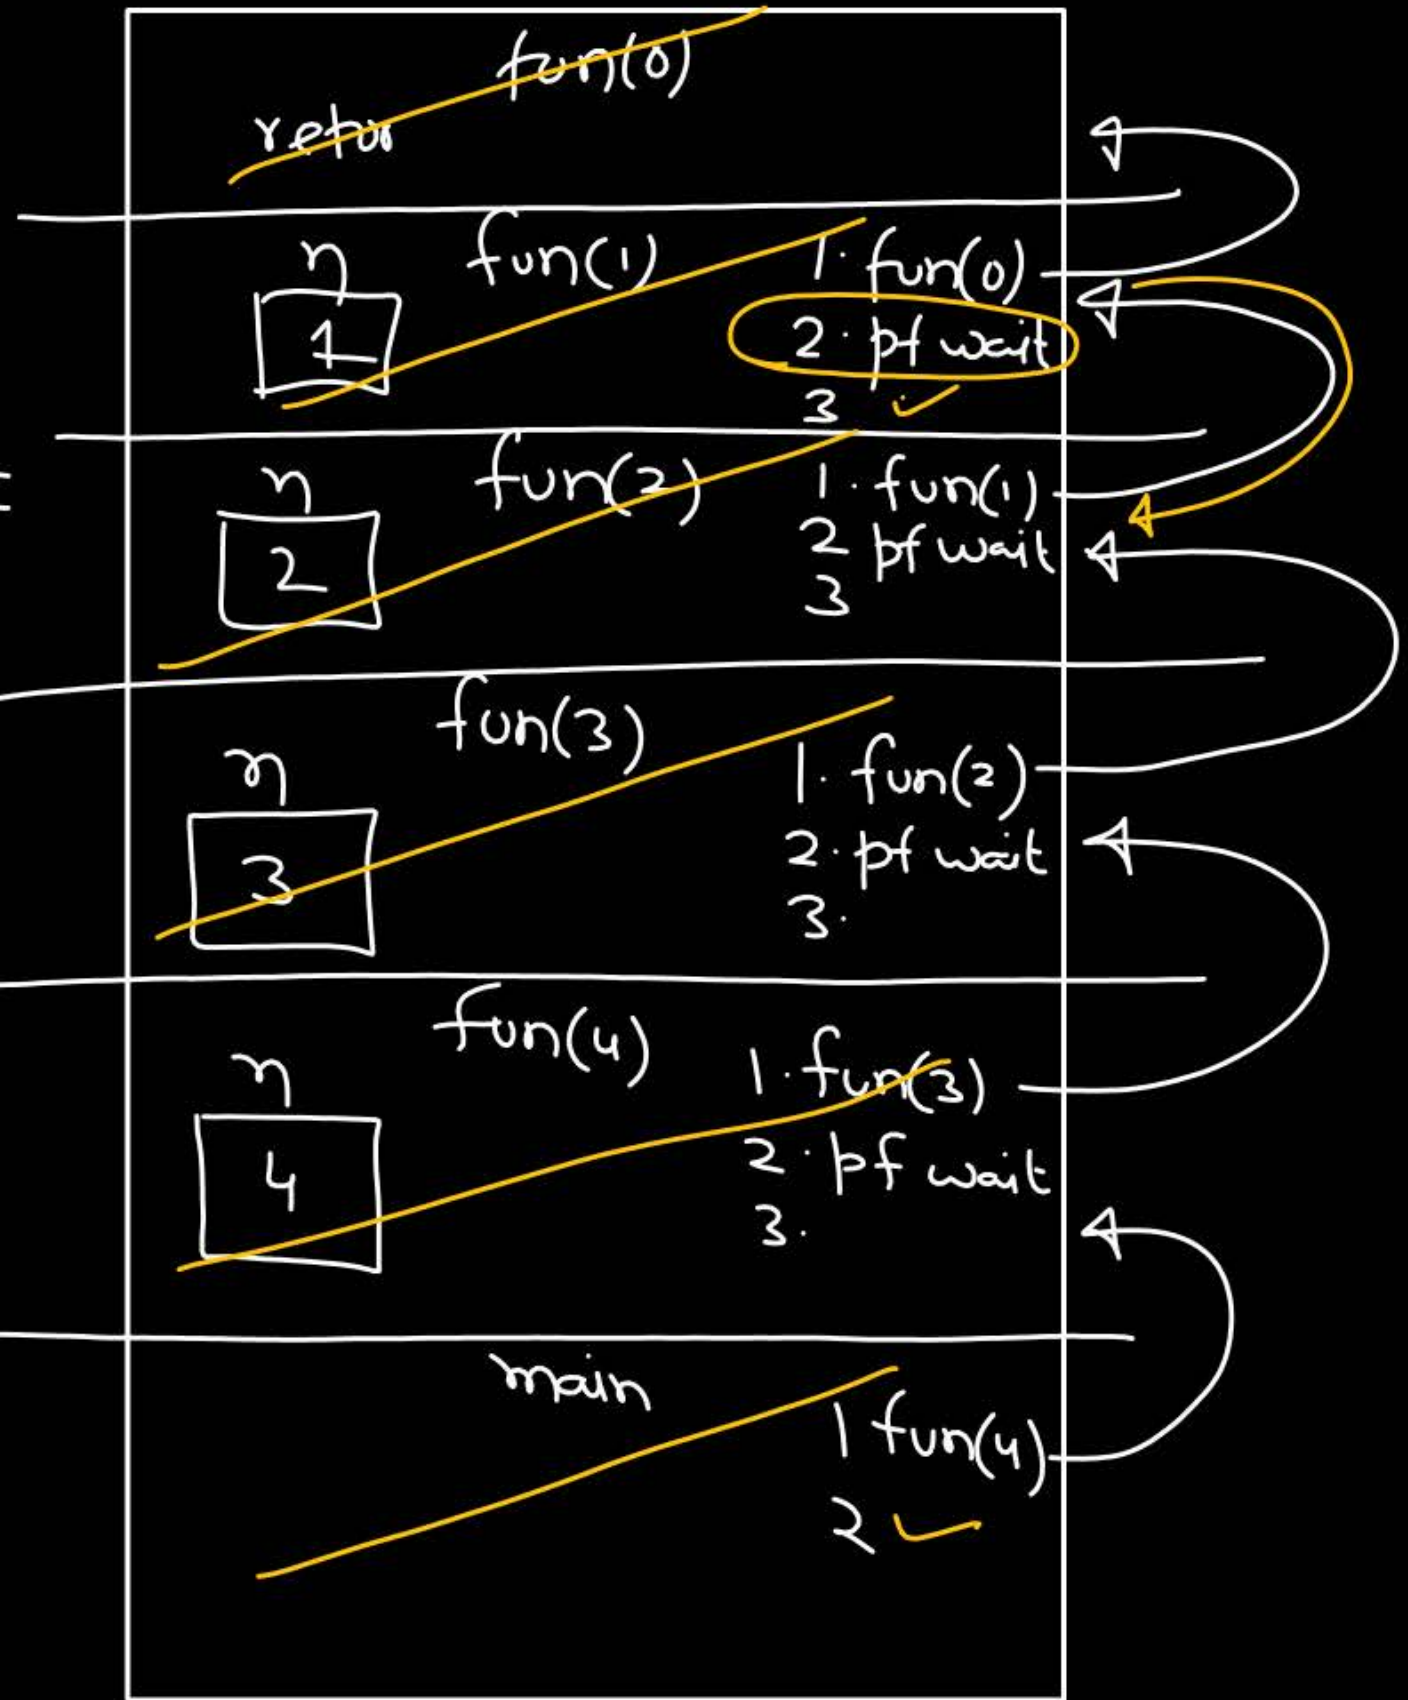 fun(0)
retur
fun(1)
n
1
1. fun(0)
2. pf wait
3
fun(2)
n
2
1. fun(1)
2 pf wait
3
fun(3)
n
3
1. fun(2)
2. pf wait
3.
fun(4)
n
4
1. fun(3)
2. pf wait
3.
main
1 fun(4)
2